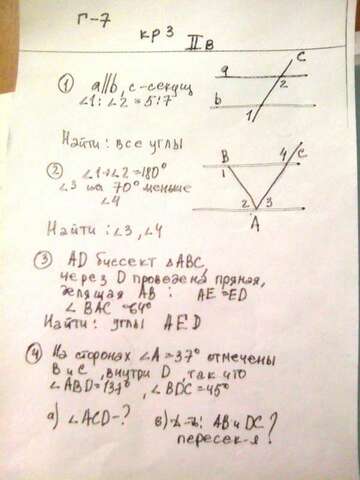 Г-7
кр 3
II в
① a∥b, c-секущ
∠1:∠2=5:7
Найти: все углы
a
b
c
2
1
② ∠1+∠2=180°
∠3 на 70° меньше
∠4
Найти: ∠3, ∠4
B
4
C
1
2
3
A
③ AD биссект △ABC,
через D проведена прямая,
делящая AB : AE=ED
∠BAC=64°
Найти: углы AED
④ На сторонах ∠A=37° отмечены
B и C, внутри D, так что
∠ABD=137°, ∠BDC=45°
а) ∠ACD-?
в) д-ть: AB и DC
пересек-я?